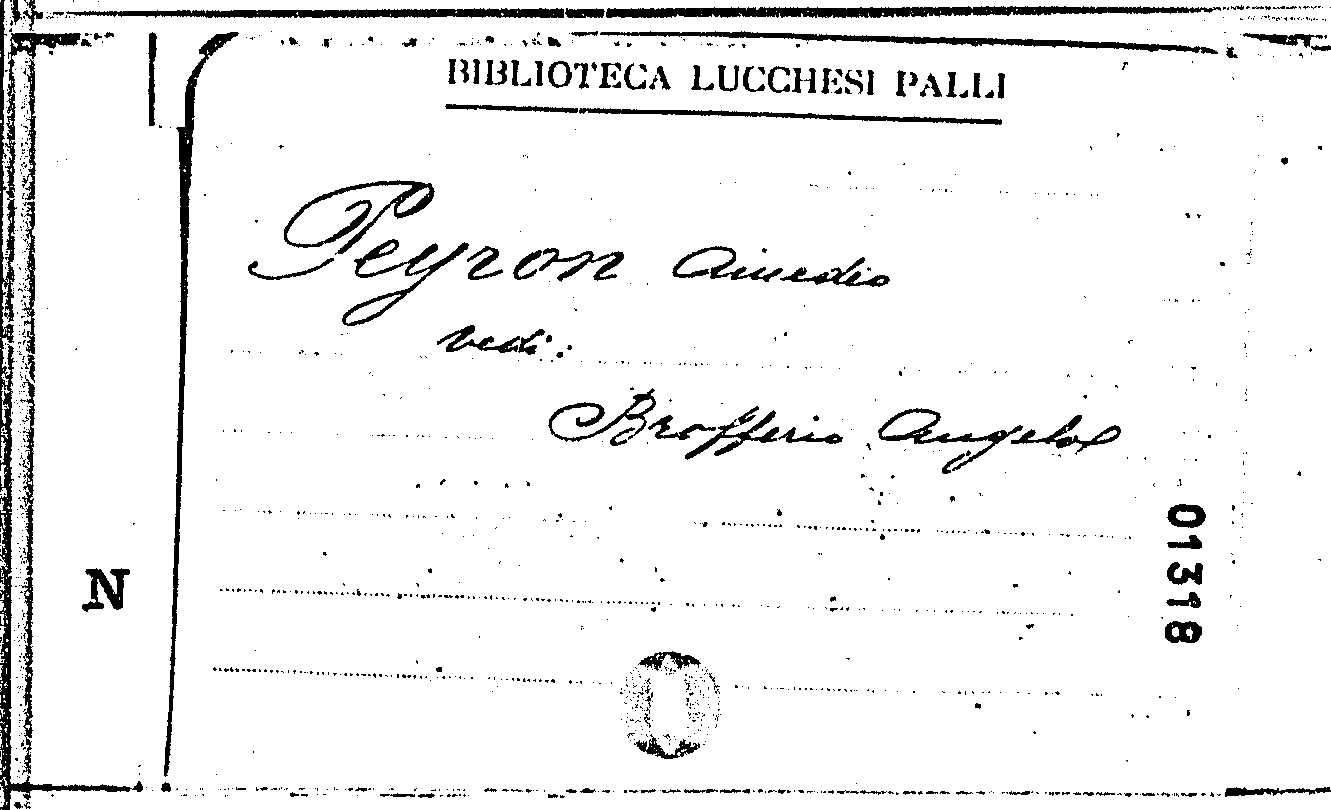 BIBLIOTECA LUCCHESI PALLI
Peyron Amedeo
vedi:
Brofferio Angelo
01318
N